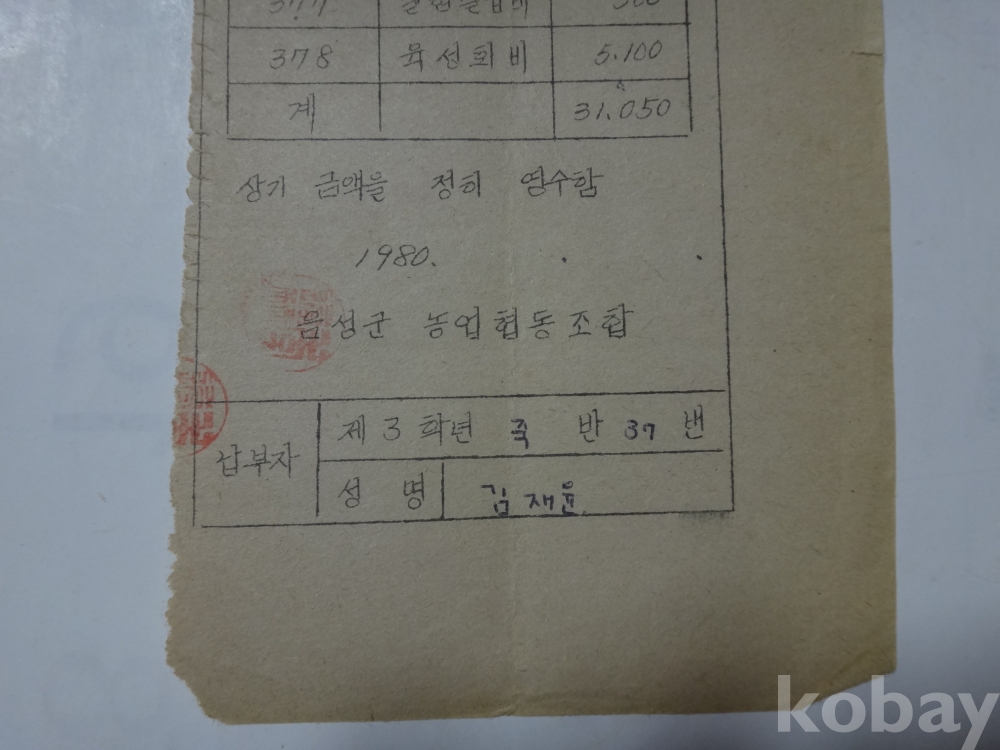 377
378 육성회비 5.100
계 31.050
상기 금액을 정히 영수함
1980. . .
음성군 농업협동조합
납부자 제 3 학년 죽 반 37 번
성 명 김재윤
kobay